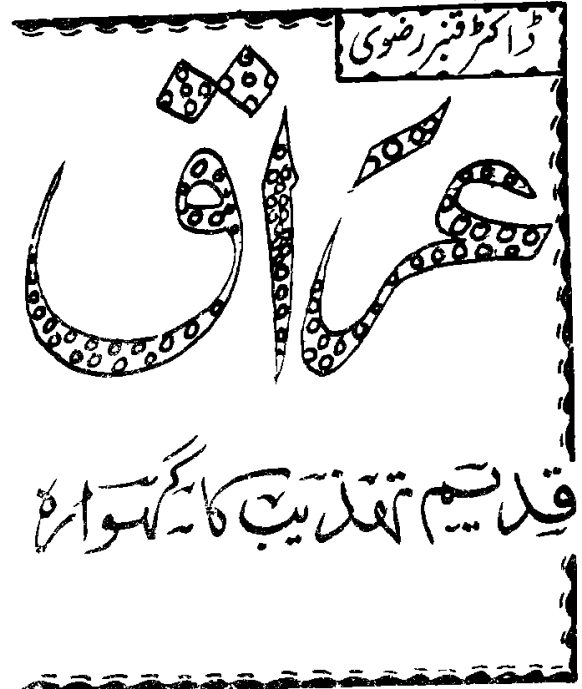 ڈاکٹر قنبر رضوی
عراق
قدیم تہذیب کا گہوارہ